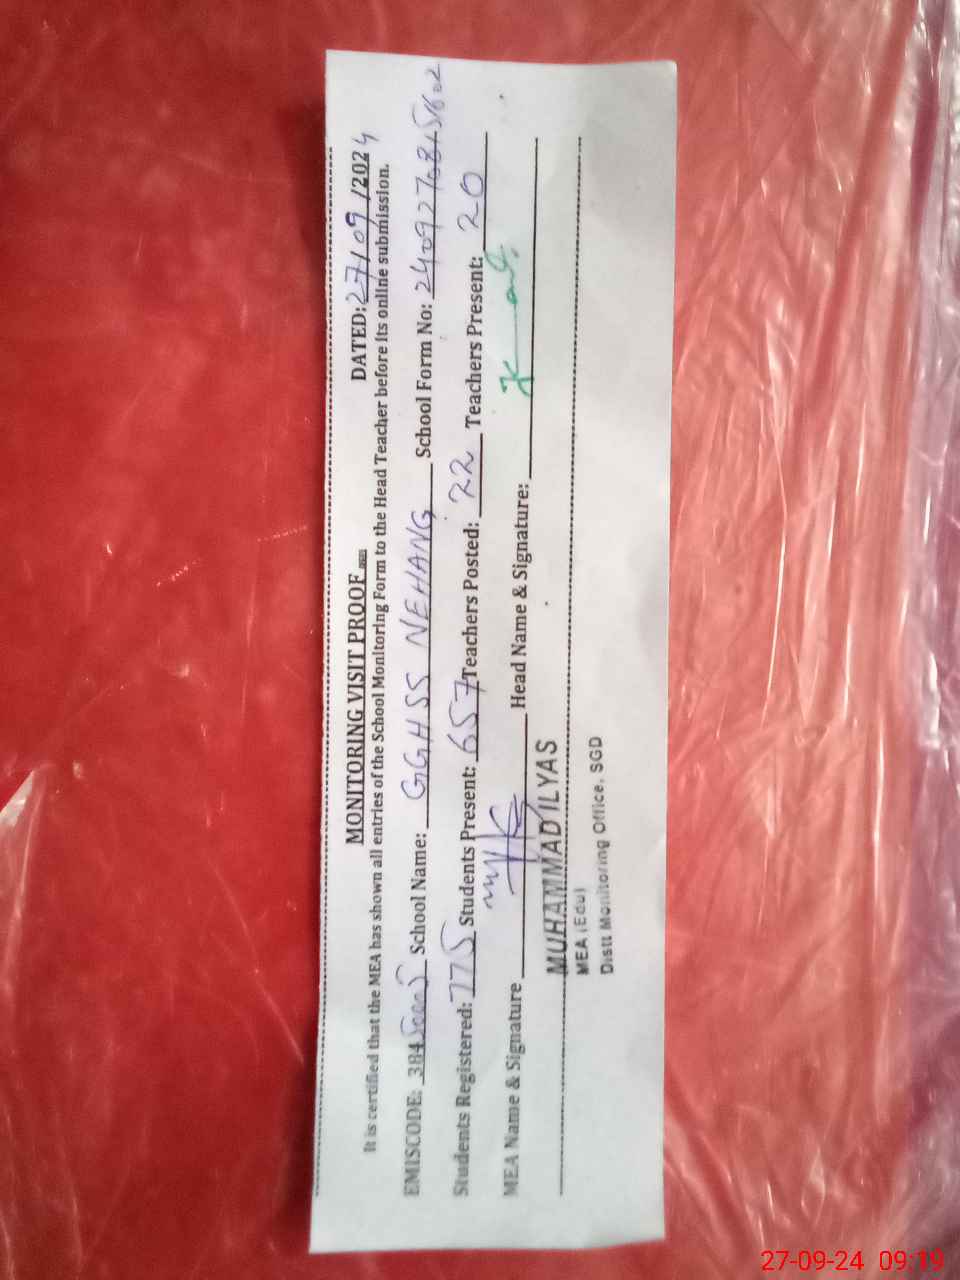 MONITORING VISIT PROOF
DATED: 27/09/2024
It is certified that the MEA has shown all entries of the School Monitoring Form to the Head Teacher before its online submission.
EMISCODE: 384 School Name: GGHSS NEHANG School Form No:
Students Registered: 775 Students Present: 657 Teachers Posted: 22 Teachers Present: 20
MEA Name & Signature Head Name & Signature:
MUHAMMAD ILYAS
MEA (Edu)
Distt Monitoring Office, SGD
27-09-24 09:19